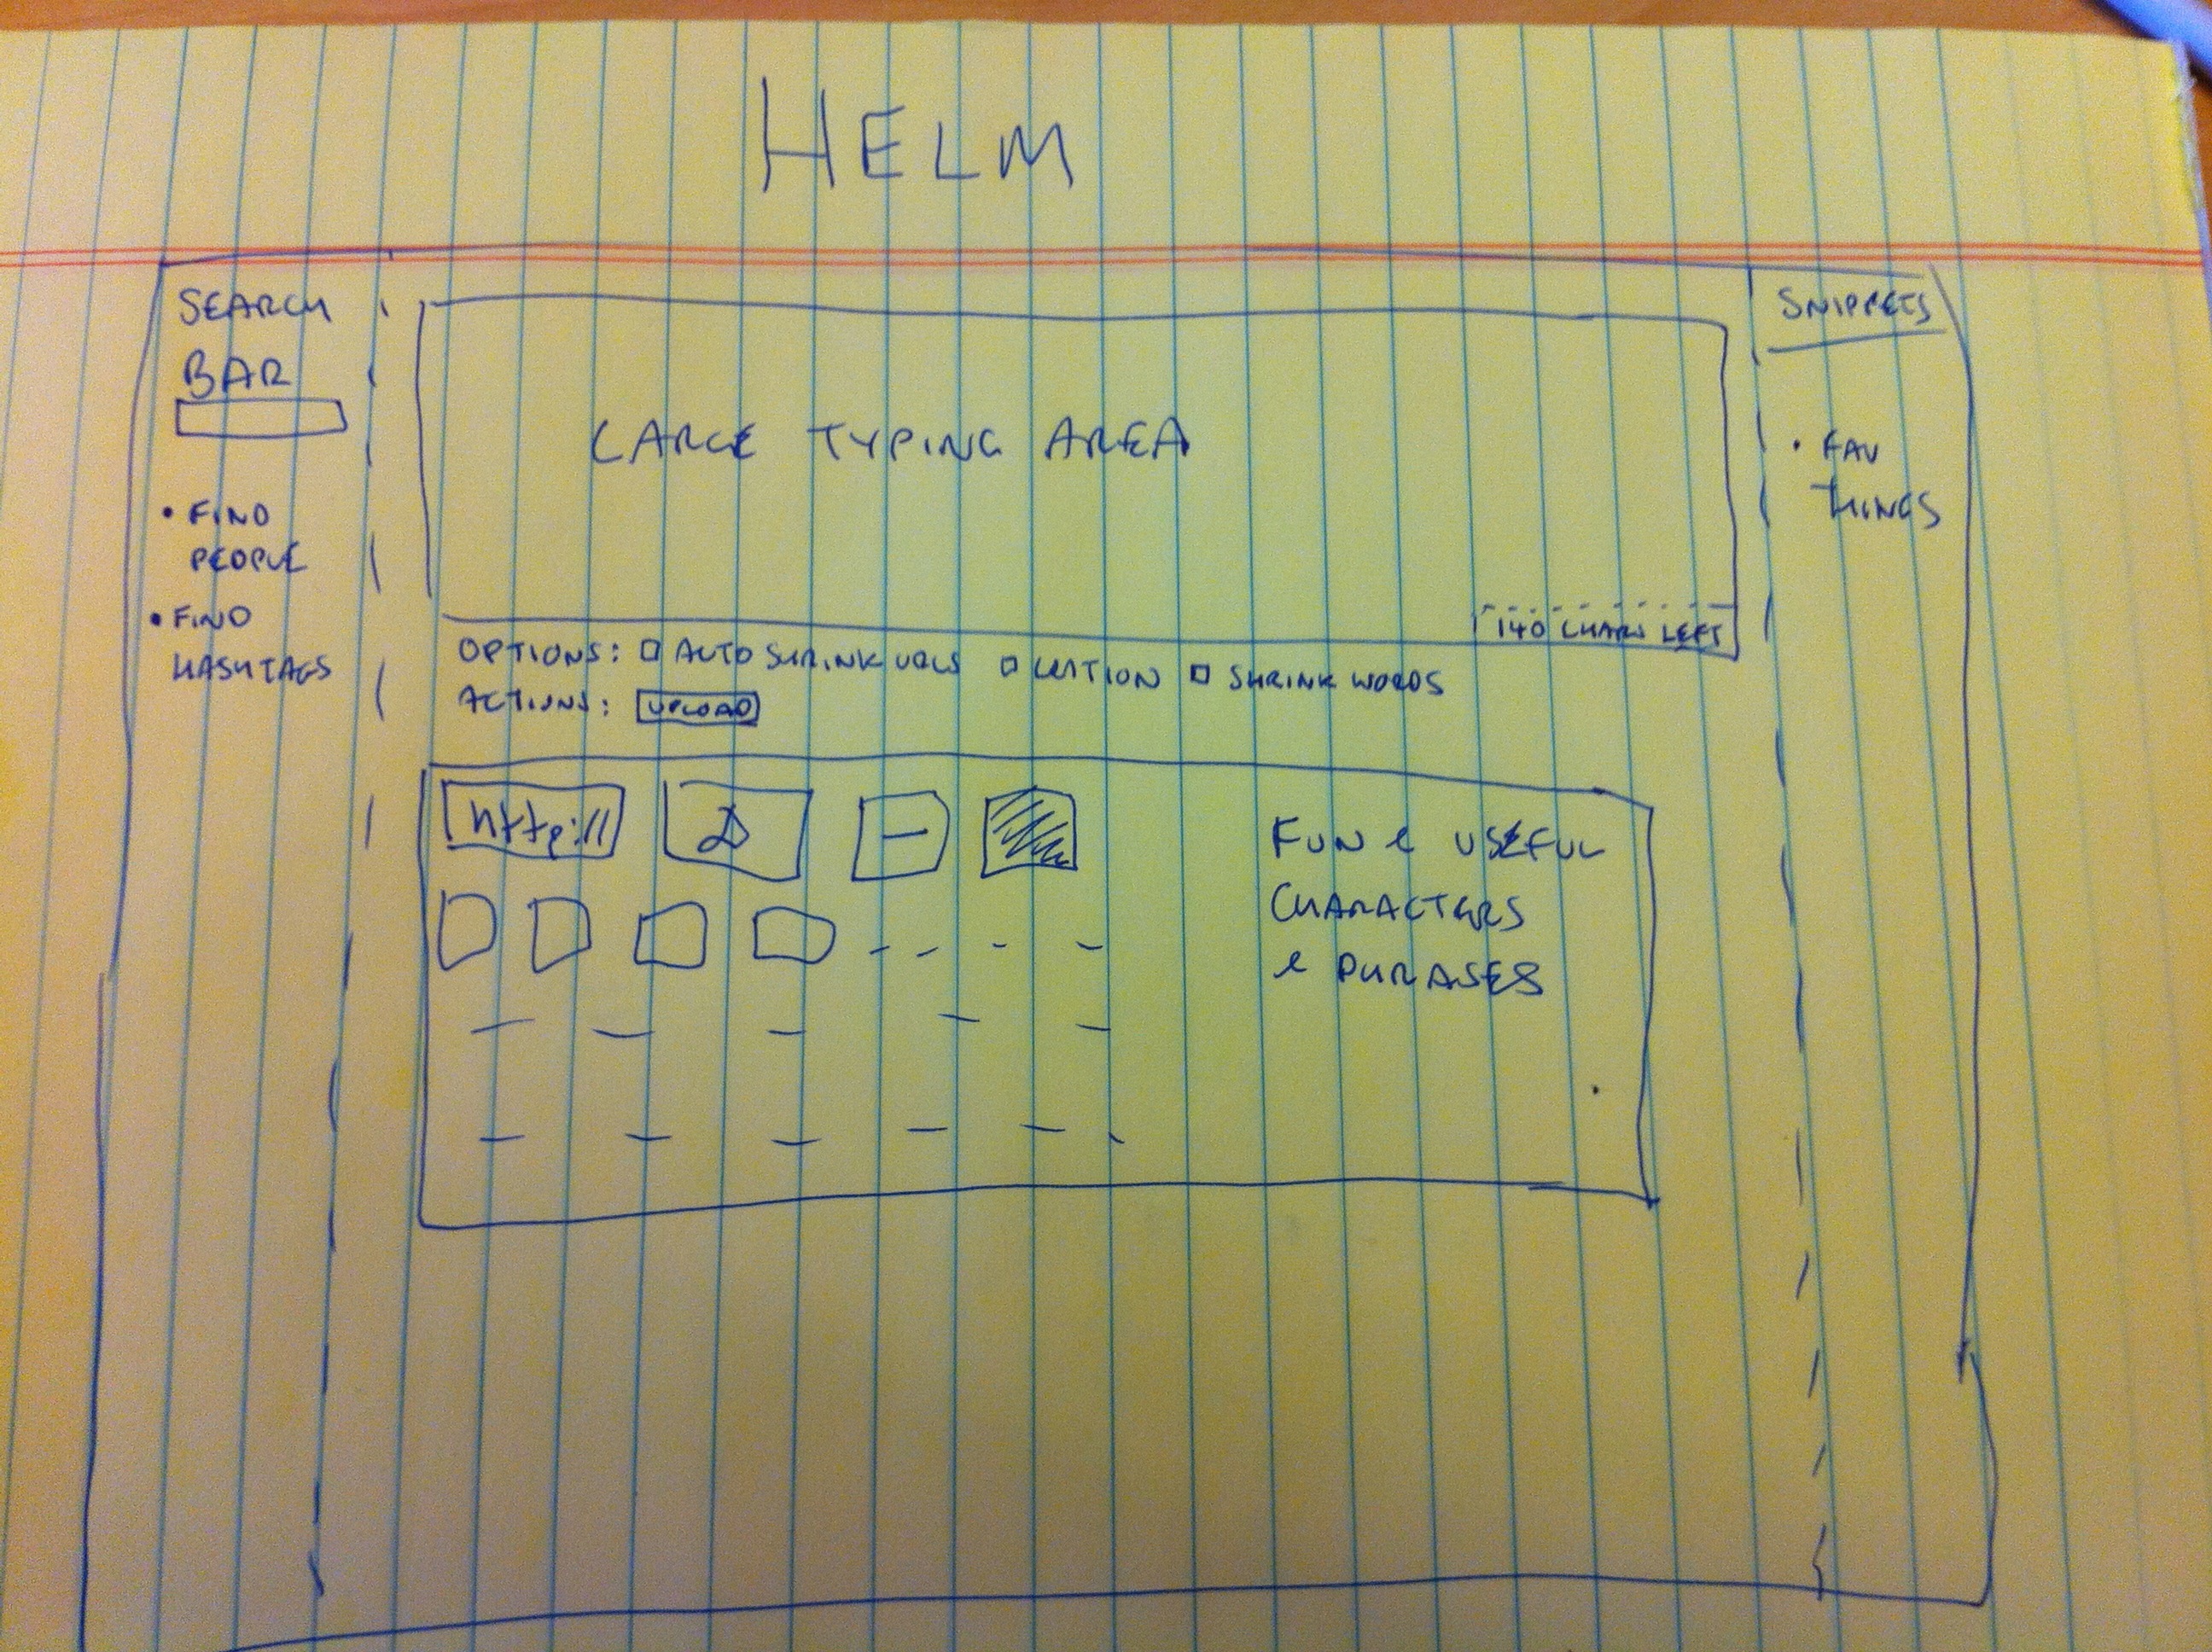 HELM
SEARCH
BAR
• FIND
PEOPLE
• FIND
HASHTAGS
LARGE TYPING AREA
140 CHARS LEFT
OPTIONS: □ AUTO SHRINK URLS □ LOCTION □ SHRINK WORDS
ACTIONS: UPLOAD
http://
FUN & USEFUL
CHARACTERS
& PHRASES
SNIPPETS
• FAV
THINGS